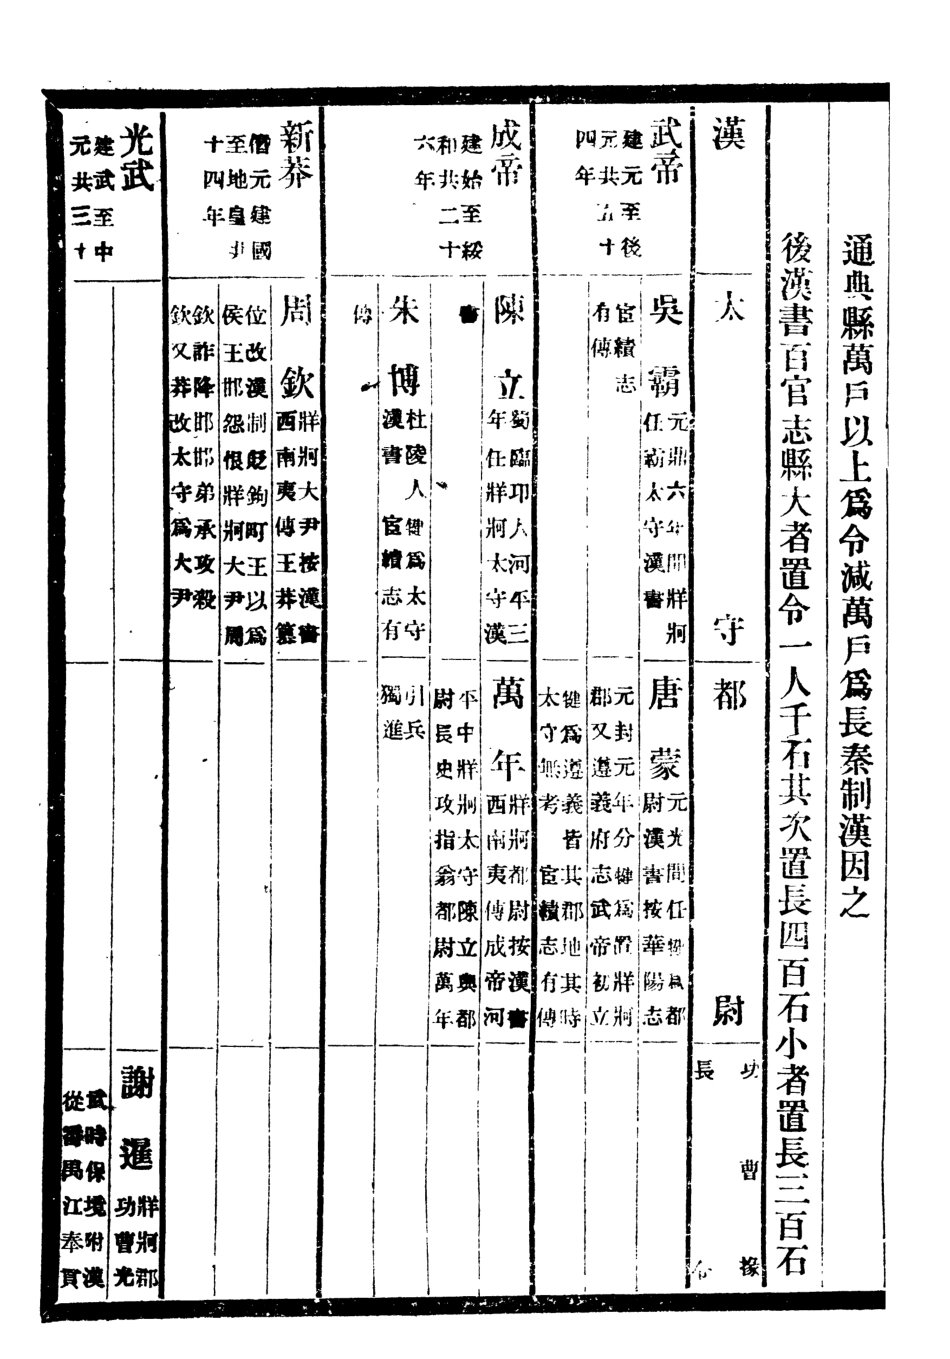 通典縣萬戶以上爲令減萬戶爲長秦制漢因之
後漢書百官志縣大者置令一人千石其次置長四百石小者置長三百石
漢
太守
都尉
功曹掾
長令
武帝
建元至後
元共五十
四年
吳霸
元鼎六年開牂牁
任霸太守漢書
宦績志
有傳
唐蒙
元光間任犍爲都
尉漢書按華陽志
元封元年分犍爲置牂牁
郡又遵義府志武帝初立
犍爲遵義皆其郡地其時
太守無考宦績志有傳
成帝
建始至綏
和共二十
六年
陳立
蜀臨邛人河平三
年任牂牁太守漢
書
萬年
牂牁都尉按漢書
西南夷傳成帝河
平中牂牁太守陳立與都
尉長史攻指翁都尉萬年
引兵
獨進
朱博
杜陵人犍爲太守
漢書宦績志有
傳
新莽
僭元建國
至地皇共
十四年
周欽
牂牁大尹按漢書
西南夷傳王莽篡
位改漢制貶鉤町王以爲
侯王邯怨恨牂牁大尹周
欽詐降邯邯弟承攻殺
欽又莽改太守爲大尹
光武
建武至中
元共三十
謝暹
牂牁郡
功曹光
武時保境附漢
從番禺江奉貢